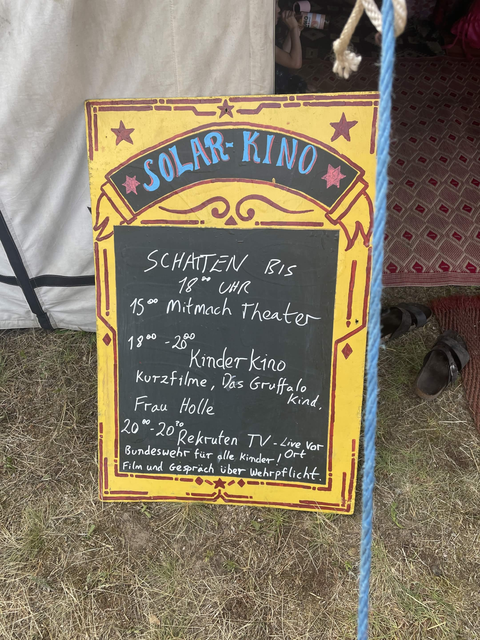 SOLAR-KINO
SCHATTEN BIS
18⁰⁰ UHR
15⁰⁰ Mitmach Theater
18⁰⁰ - 20⁰⁰
Kinderkino
Kurzfilme, Das Gruffalo
Kind,
Frau Holle
20⁰⁰ - 20³⁰
Rekruten TV - Live vor
Ort
Bundeswehr für alle Kinder!
Film und Gespräch über Wehrpflicht.